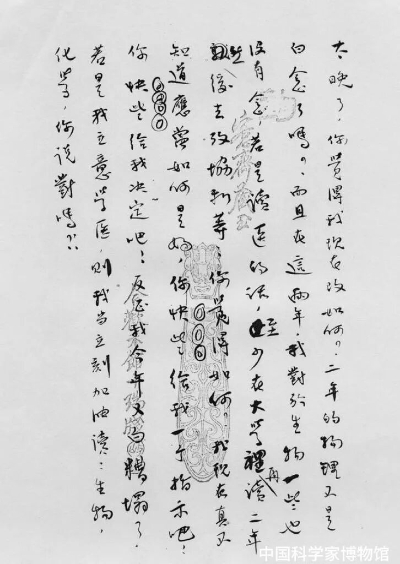 太晚了，你覺得我現在改如何？二年的物理又是
白念了嗎？而且在這兩年，我對於生物一些也
沒有念，若是讀医的話，至少在大學裡再讀二年
然後去攷協和等，你覺得如何？我現在真不
知道應當如何是好，你快些給我一个指示吧！
你快些給我决定吧！反正我今年又白糟塌了。
若是我立意學医，則我当立刻加油讀：生物，
化學，你說對嗎？
中国科学家博物馆